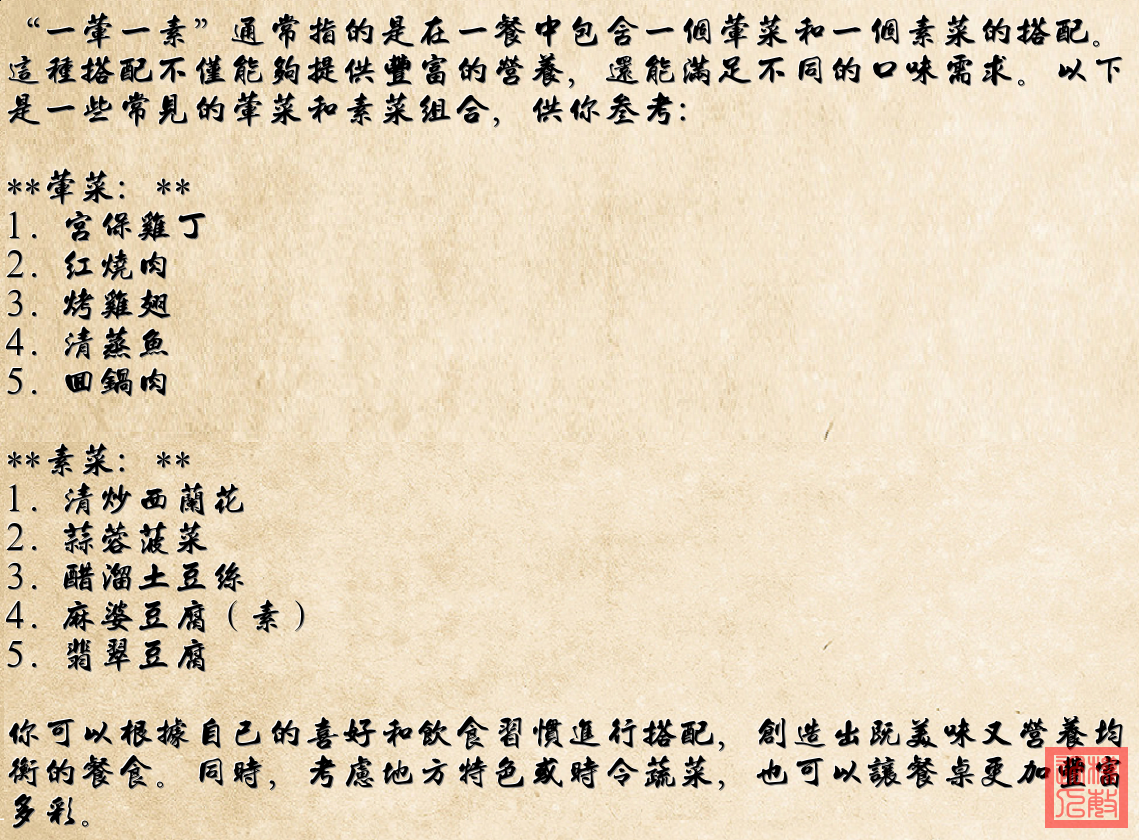 “一葷一素”通常指的是在一餐中包含一個葷菜和一個素菜的搭配。
這種搭配不僅能夠提供豐富的營養，還能滿足不同的口味需求。以下
是一些常見的葷菜和素菜組合，供你參考：
**葷菜：**
1. 宮保雞丁
2. 紅燒肉
3. 烤雞翅
4. 清蒸魚
5. 回鍋肉
**素菜：**
1. 清炒西蘭花
2. 蒜蓉菠菜
3. 醋溜土豆絲
4. 麻婆豆腐（素）
5. 翡翠豆腐
你可以根據自己的喜好和飲食習慣進行搭配，創造出既美味又營養均
衡的餐食。同時，考慮地方特色或時令蔬菜，也可以讓餐桌更加豐富
多彩。